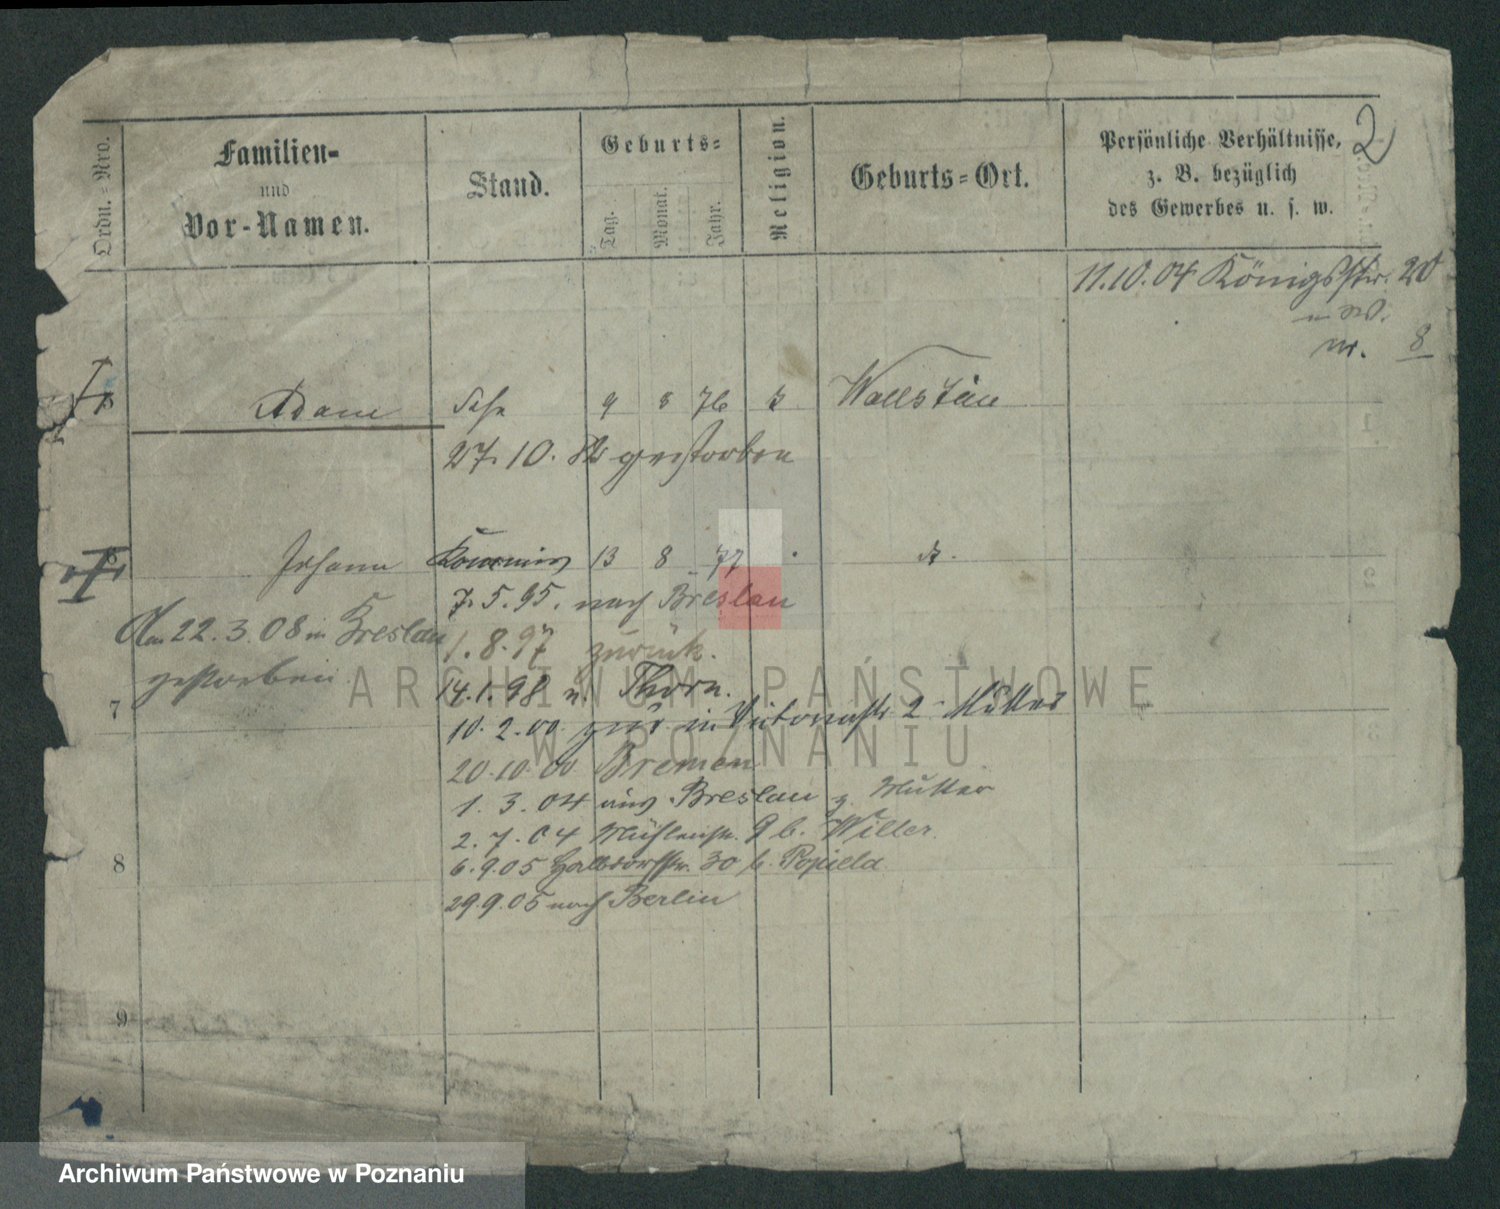 Ordn.-Nro.
Familien-
und
Vor-Namen.
Stand.
Geburts-
Tag.
Monat.
Jahr.
Religion.
Geburts-Ort.
Persönliche Verhältnisse,
z. B. bezüglich
des Gewerbes u. s. w.
2
11.10.04 Königsstr. 20
8
Adam 9 8 76 Wollstein
27.10. gestorben
Johann 13 8 77
7.5.95. nach Breslau
Am 22.3.08 in Breslau
gestorben
1.8.97 zurück.
14.1.98 n. Thorn.
7
10.2.00 zur. in Victoriastr. 2 Mutter
20.10.00 Bremen
1.3.04 aus Breslau z. Mutter
2.7.04 Mühlenstr. 9 b. Willer.
8
6.9.05 Halbdorfstr. 30 b. Popiela
29.9.05 nach Berlin
9
ARCHIWUM PAŃSTWOWE
W POZNANIU
Archiwum Państwowe w Poznaniu